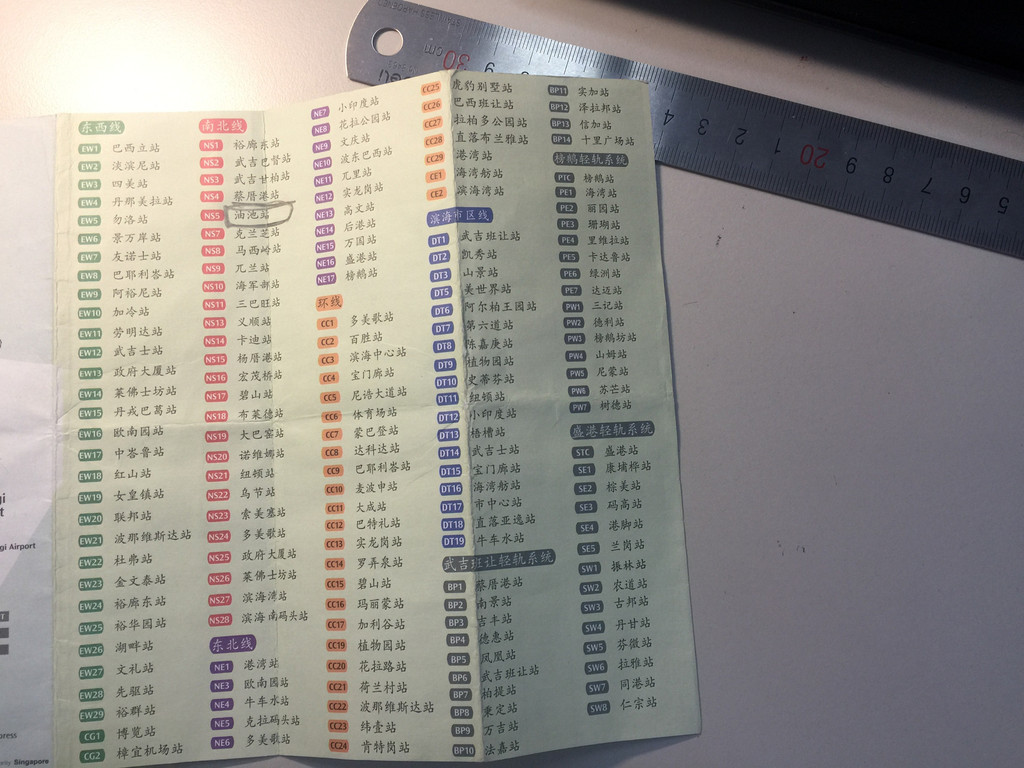 东西线
EW1 巴西立站
EW2 淡滨尼站
EW3 四美站
EW4 丹那美拉站
EW5 勿洛站
EW6 景万岸站
EW7 友诺士站
EW8 巴耶利峇站
EW9 阿裕尼站
EW10 加冷站
EW11 劳明达站
EW12 武吉士站
EW13 政府大厦站
EW14 莱佛士坊站
EW15 丹戎巴葛站
EW16 欧南园站
EW17 中峇鲁站
EW18 红山站
EW19 女皇镇站
EW20 联邦站
EW21 波那维斯达站
EW22 杜弗站
EW23 金文泰站
EW24 裕廊东站
EW25 裕华园站
EW26 湖畔站
EW27 文礼站
EW28 先驱站
EW29 裕群站
CG1 博览站
CG2 樟宜机场站
南北线
NS1 裕廊东站
NS2 武吉巴督站
NS3 武吉甘柏站
NS4 蔡厝港站
NS5 油池站
NS7 克兰芝站
NS8 马西岭站
NS9 兀兰站
NS10 海军部站
NS11 三巴旺站
NS13 义顺站
NS14 卡迪站
NS15 杨厝港站
NS16 宏茂桥站
NS17 碧山站
NS18 布莱德站
NS19 大巴窑站
NS20 诺维娜站
NS21 纽顿站
NS22 乌节站
NS23 索美塞站
NS24 多美歌站
NS25 政府大厦站
NS26 莱佛士坊站
NS27 滨海湾站
NS28 滨海南码头站
东北线
NE1 港湾站
NE3 欧南园站
NE4 牛车水站
NE5 克拉码头站
NE6 多美歌站
NE7 小印度站
NE8 花拉公园站
NE9 文庆站
NE10 波东巴西站
NE11 兀里站
NE12 实龙岗站
NE13 高文站
NE14 后港站
NE15 万国站
NE16 盛港站
NE17 榜鹅站
环线
CC1 多美歌站
CC2 百胜站
CC3 滨海中心站
CC4 宝门廊站
CC5 尼诰大道站
CC6 体育场站
CC7 蒙巴登站
CC8 达科达站
CC9 巴耶利峇站
CC10 麦波申站
CC11 大成站
CC12 巴特礼站
CC13 实龙岗站
CC14 罗弄泉站
CC15 碧山站
CC16 玛丽蒙站
CC17 加利谷站
CC19 植物园站
CC20 花拉路站
CC21 荷兰村站
CC22 波那维斯达站
CC23 纬壹站
CC24 肯特岗站
CC25 虎豹别墅站
CC26 巴西班让站
CC27 拉柏多公园站
CC28 直落布兰雅站
CC29 港湾站
CE1 海湾舫站
CE2 滨海湾站
滨海市区线
DT1 武吉班让站
DT2 凯秀站
DT3 山景站
DT5 美世界站
DT6 阿尔柏王园站
DT7 第六道站
DT8 陈嘉庚站
DT9 植物园站
DT10 史蒂芬站
DT11 纽顿站
DT12 小印度站
DT13 梧槽站
DT14 武吉士站
DT15 宝门廊站
DT16 海湾舫站
DT17 市中心站
DT18 直落亚逸站
DT19 牛车水站
武吉班让轻轨系统
BP1 蔡厝港站
BP2 南景站
BP3 吉丰站
BP4 德惠站
BP5 凤凰站
BP6 武吉班让站
BP7 柏提站
BP8 秉定站
BP9 万吉站
BP10 法嘉站
BP11 实加站
BP12 泽拉邦站
BP13 信加站
BP14 十里广场站
榜鹅轻轨系统
PTC 榜鹅站
PE1 海湾站
PE2 丽园站
PE3 珊瑚站
PE4 里维拉站
PE5 卡达鲁站
PE6 绿洲站
PE7 达迈站
PW1 三记站
PW2 德利站
PW3 榜鹅坊站
PW4 山姆站
PW5 尼蒙站
PW6 苏芒站
PW7 树德站
盛港轻轨系统
STC 盛港站
SE1 康埔桦站
SE2 棕美站
SE3 码高站
SE4 港脚站
SE5 兰岗站
SW1 振林站
SW2 农道站
SW3 古邦站
SW4 丹甘站
SW5 芬微站
SW6 拉雅站
SW7 同港站
SW8 仁宗站
gi Airport
press
Singapore
30 cm 9
4 3 2 1 20 9 8 7 6 5